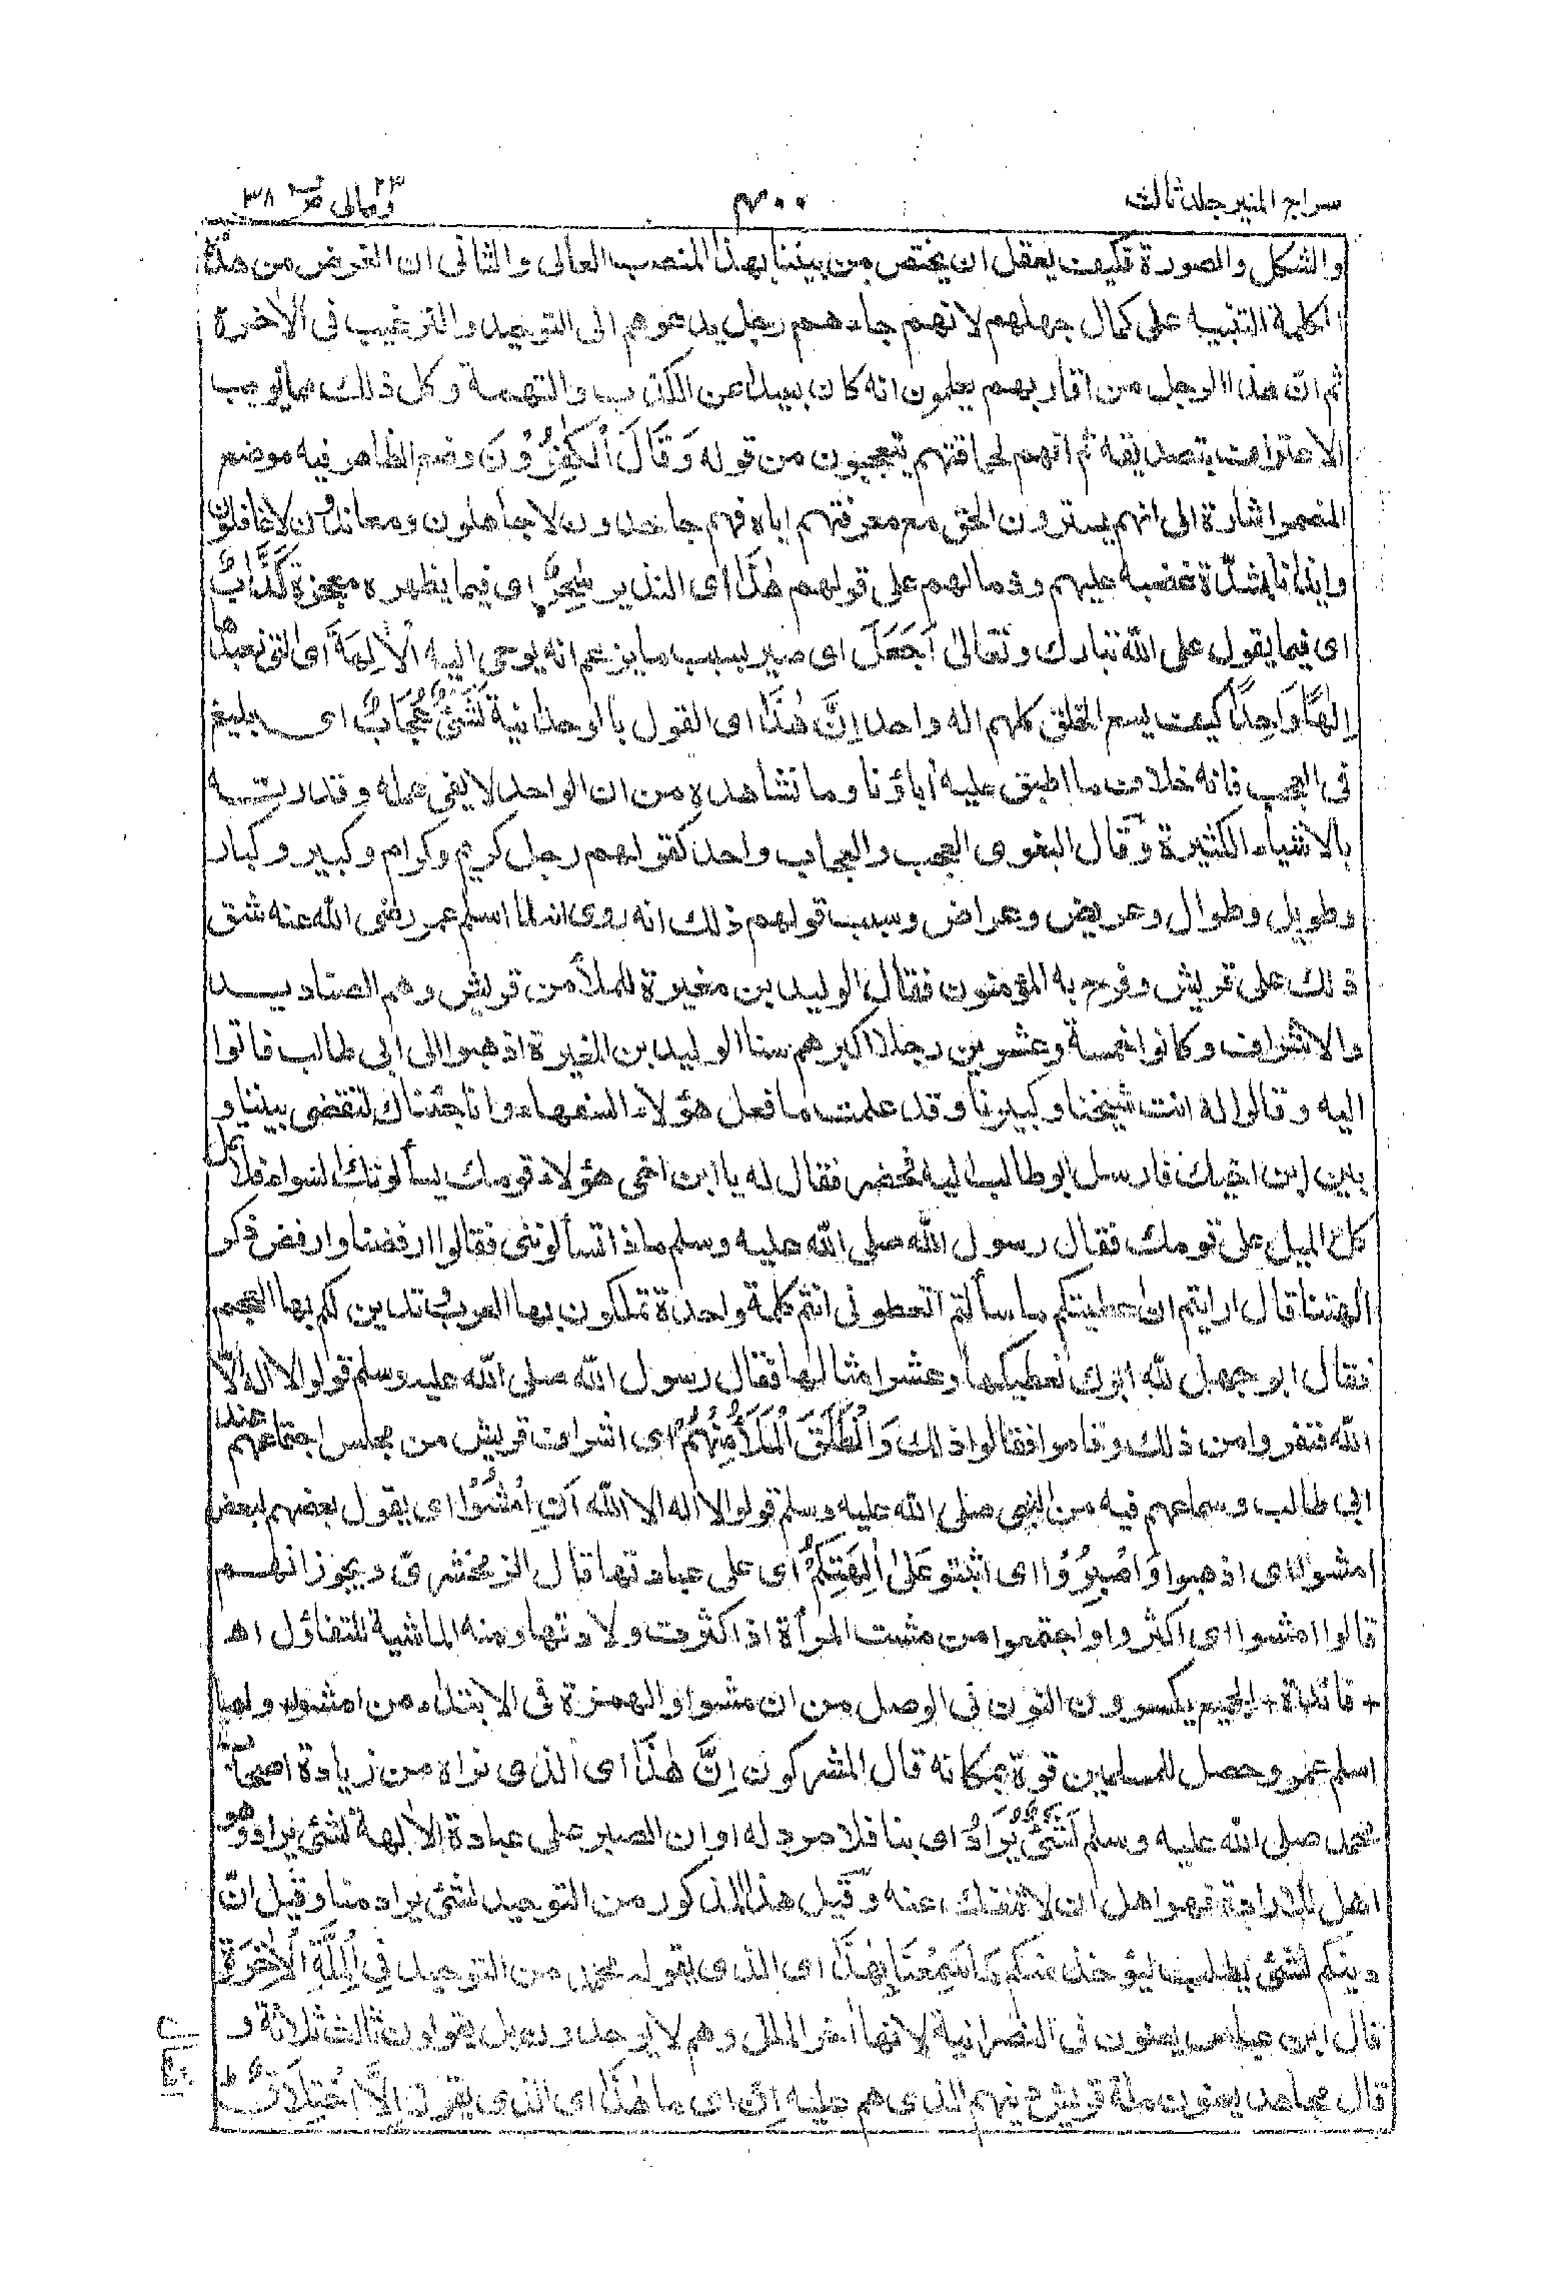 سراج المنير جلد ثالث
٣٠٠
ومالى ٢٣ ص ٣٨
والشكل والصورة فكيف يعقل ان يختص من بيننا بهذا المنصب العالى والثانى ان الغرض من هذه
الكلمة التنبيه على كمال جهلهم لانهم جاءهم رجل يدعوهم الى التوحيد والترغيب فى الآخرة
ثم ان هذا الرجل من اقاربهم يعلمون انه كان بعيدا عن الكذب والتهمة وكل ذلك مما يوجب
الاعتراف بتصديقه ثم انهم لحماقتهم يتعجبون من قوله وَقَالَ الْكٰفِرُوْنَ وضع الظاهر فيه موضع
المضمر اشارة الى انهم يسترون الحق مع معرفتهم اياه فهم جاحدون لا جاهلون ومعاندون لا غافلون
وايذانا بشدّة غضبه عليهم وذمالهم على قولهم هٰذَا اى النذير سٰحِرٌ اى فيما يظهره معجزة كَذَّابٌ
اى فيما يقول على الله تبارك وتعالى اَجَعَلَ اى صير بسبب ما يزعم انه يوحى اليه الْاٰلِهَةَ اى التى نعبدها
اِلٰهًا وَاحِدًا كيف يسع الخلق كلهم اله واحد اِنَّ هٰذَا اى القول بالوحدانية لَشَىْءٌ عُجَابٌ اى بليغ
فى العجب فانه خلاف ما اطبق عليه آباؤنا وما نشاهده من ان الواحد لا يفى علمه وقدرته
بالاشياء الكثيرة وقال البغوى العجب والعجاب واحد كقولهم رجل كريم وكرام وكبير وكبار
وطويل وطوال وعريض وعراض وسبب قولهم ذلك انه روى انه لما اسلم عمر رضى الله عنه شق
ذلك على قريش وفرح به المؤمنون فقال الوليد بن مغيرة للملأ من قريش وهم الصناديد
والاشراف وكانوا خمسة وعشرين رجلا اكبرهم سنا الوليد بن المغيرة اذهبوا الى ابى طالب فاتوا
اليه وقالوا له انت شيخنا وكبيرنا وقد علمت ما فعل هؤلاء السفهاء وانا جئناك لتقضى بيننا و
بين ابن اخيك فارسل ابو طالب اليه فحضر فقال له يا ابن اخى هؤلاء قومك يسألونك السواء فلا تمل
كل الميل على قومك فقال رسول الله صلى الله عليه وسلم ماذا تسألوننى فقالوا ارفضنا وارفض ذكر
الهتنا قال ارايتم ان اعطيتكم ما سألتم اتعطونى انتم كلمة واحدة تملكون بها العرب وتدين لكم بها العجم
فقال ابو جهل لله ابوك نعطيكها وعشرا مثالها فقال رسول الله صلى الله عليه وسلم قولوا لا اله الّا
الله فنفروا من ذلك وقاموا فقالوا ذلك وَانْطَلَقَ الْمَلَاُ مِنْهُمْ اى اشراف قريش من مجلس اجتماعهم عند
ابى طالب وسماعهم فيه من النبى صلى الله عليه وسلم قولوا لا اله الا الله اَنِ امْشُوْا اى يقول بعضهم لبعض
امشوا اى اذهبوا وَاصْبِرُوْا اى اثبتوا عَلٰى اٰلِهَتِكُمْ اى على عبادتها قال الزمخشرى ويجوز انهم
قالوا امشوا اى اكثروا واجتمعوا من مشت المرأة اذا كثرت ولادتها ومنه الماشية للتفاؤل اھ
+ فائدة + الجميع يكسرون النون فى الوصل من ان مشوا والهمزة فى الابتداء من امشوا ولما
اسلم عمر وحصل للمسلمين قوة بمكانه قال المشركون اِنَّ هٰذَا اى الذى نراه من زيادة اصحاب
محمد صلى الله عليه وسلم لَشَىْءٌ يُّرَادُ اى بنا فلا مرد له او ان الصبر على عبادة الالهة لشئ يراد وهو
اهل للارادة فهو اهل ان لا ننفك عنه وقيل هذا المذكور من التوحيد لشئ يراد منا وقيل انّ
دينكم لشئ يطلب ليؤخذ منكم مَا سَمِعْنَا بِهٰذَا اى الذى يقوله محمد من التوحيد فِى الْمِلَّةِ الْاٰخِرَةِ
قال ابن عباس يعنون فى النصرانية لانها آخر الملل وهم لا يوحدون بل يقولون ثالث ثلاثة و
قال مجاهد يعنون ملة قريش دينهم الذى هم عليه اِنْ اى ما هٰذَا اى الذى يقوله اِلَّا اخْتِلَاقٌ